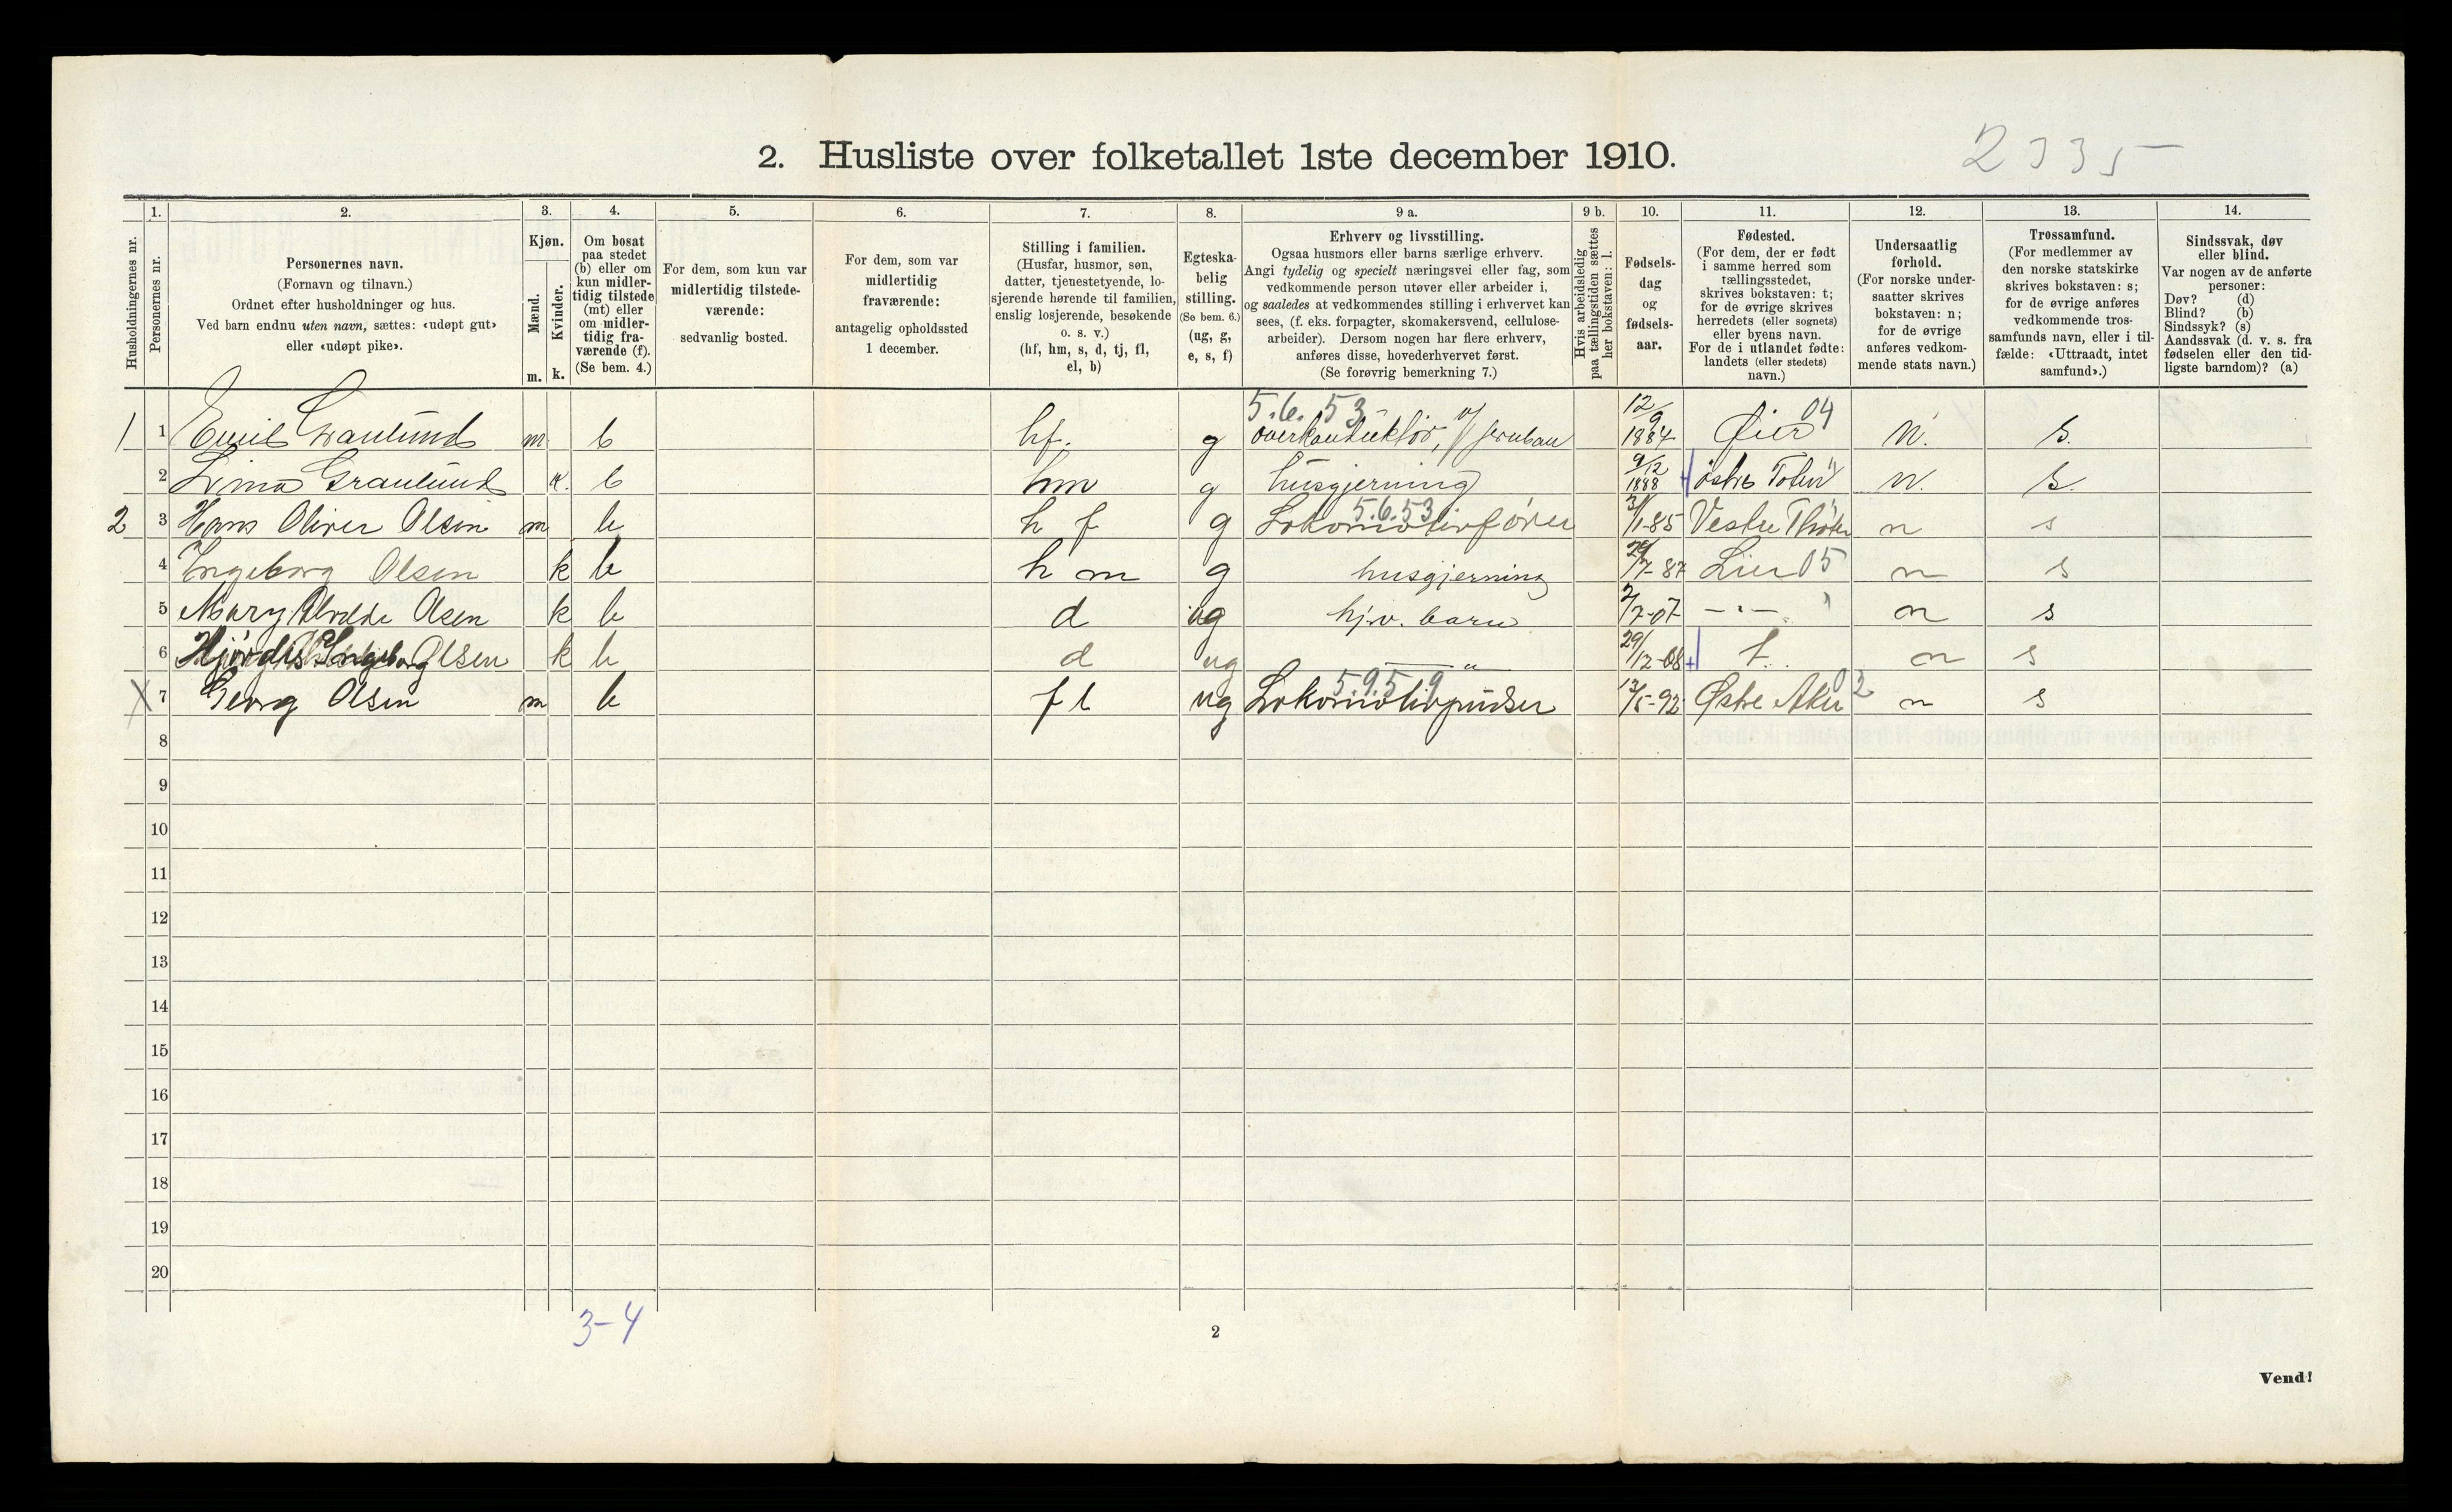 2 3 3 5
2. Husliste over folketallet 1ste december 1910.
Husholdningernes nr.
1.
Personernes nr.
2.
Personernes navn.
(Fornavn og tilnavn.)
Ordnet efter husholdninger og hus.
Ved barn endnu uten navn, sættes: «udøpt gut»
eller «udøpt pike».
3.
Kjøn.
Mænd.
Kvinder.
m. k.
4.
Om bosat
paa stedet
(b) eller om
kun midler-
tidig tilstede
(mt) eller
om midler-
tidig fra-
værende (f).
(Se bem. 4.)
5.
For dem, som kun var
midlertidig tilstede-
værende:
sedvanlig bosted.
6.
For dem, som var
midlertidig
fraværende:
antagelig opholdssted
1 december.
7.
Stilling i familien.
(Husfar, husmor, søn,
datter, tjenestetyende, lo-
sjerende hørende til familien,
enslig losjerende, besøkende
o. s. v.)
(hf, hm, s, d, tj, fl,
el, b)
8.
Egteska-
belig
stilling.
(Se bem. 6.)
(ug, g,
e, s, f)
9 a.
Erhverv og livsstilling.
Ogsaa husmors eller barns særlige erhverv.
Angi tydelig og specielt næringsvei eller fag, som
vedkommende person utøver eller arbeider i,
og saaledes at vedkommendes stilling i erhvervet kan
sees, (f. eks. forpagter, skomakersvend, cellulose-
arbeider). Dersom nogen har flere erhverv,
anføres disse, hovederhvervet først.
(Se forøvrig bemerkning 7.)
9 b.
Hvis arbeidsledig
paa tællingstiden sættes
her bokstaven: l.
10.
Fødsels-
dag
og
fødsels-
aar.
11.
Fødested.
(For dem, der er født
i samme herred som
tællingsstedet,
skrives bokstaven: t;
for de øvrige skrives
herredets (eller sognets)
eller byens navn.
For de i utlandet fødte:
landets (eller stedets)
navn.)
12.
Undersaatlig
forhold.
(For norske under-
saatter skrives
bokstaven: n;
for de øvrige
anføres vedkom-
mende stats navn.)
13.
Trossamfund.
(For medlemmer av
den norske statskirke
skrives bokstaven: s;
for de øvrige anføres
vedkommende tros-
samfunds navn, eller i til-
fælde: «Uttraadt, intet
samfund».)
14.
Sindssvak, døv
eller blind.
Var nogen av de anførte
personer:
Døv? (d)
Blind? (b)
Sindssyk? (s)
Aandssvak (d. v. s. fra
fødselen eller den tid-
ligste barndom)? (a)
5.6.53 04
1 1 Emil Graulund m b hf. g overkonduktør, v/ jernban 12/9 1884 Øier n. s.
2 Graulund k. b hm g husgjerning 9/12 1888 østre Toten n. s.
5.6.53
2 3 Hans Oliver Olsen m b h f g Lokomotivfører 31/1-85 Vestre n s
4 Ingeborg Olsen k b h m g husgjerning 29/7-87 Lier 05 n s
5 Mary Olsen k b d ug hj.v. barn 2/7-07 — " — n s
6 Hjørdis Ingeborg Olsen k b d ug — " 29/12-08 t. n s
5.9.59 02
X 7 Georg Olsen m b f l ug Lokomotivpudser 12/5-92 Østre Aker n s
8
9
10
11
12
13
14
15
16
17
18
19
20
3-4
2
Vend!